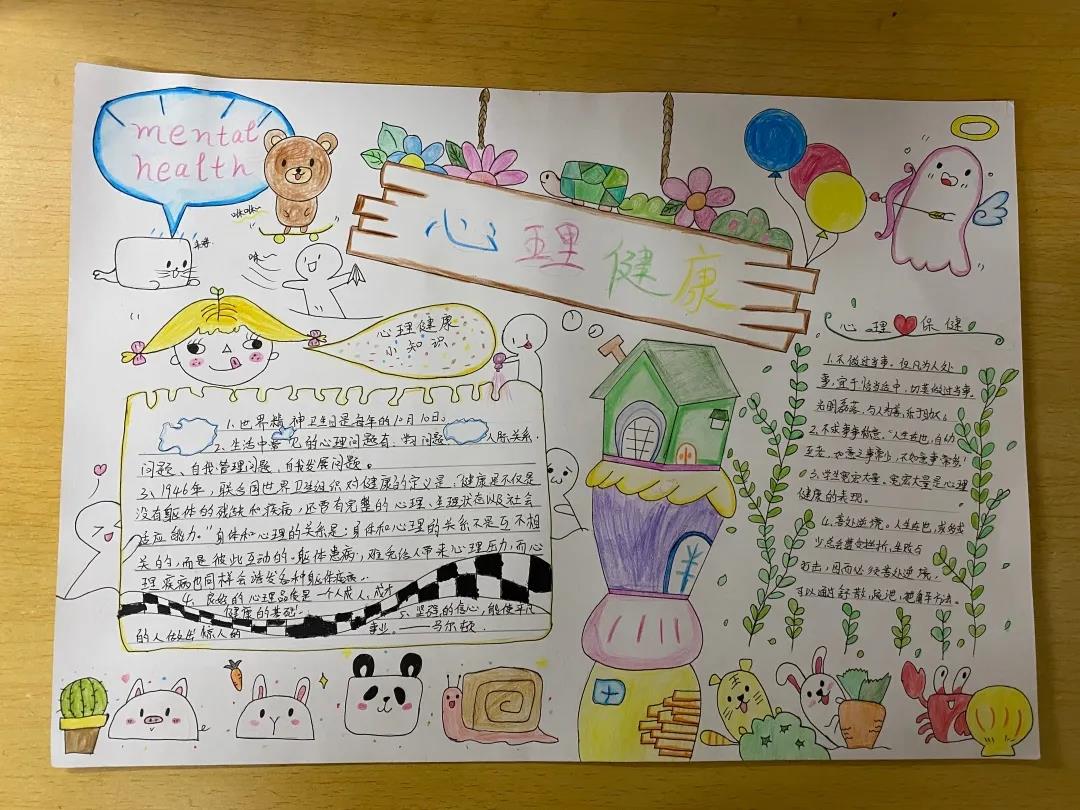 mental
health
心理健康
心理健康
小知识
1.世界精神卫生日是每年的10月10日。
2.生活中常见的心理问题有:学习问题、人际关系
问题、自我管理问题、自我发展问题。
3、1946年，联合国世界卫生组织对健康的定义是："健康是不仅是
没有躯体的残缺和疾病，还要有完整的心理、生理状态以及社会
适应能力。"身体和心理的关系是:身体和心理的关系不是互不相
关的，而是彼此互动的。躯体患病，难免给人带来心理压力，而心
理疾病也同样会诱发各种躯体疾病。
4、良好的心理品质是一个人成人、成才
健康的基础。
5、坚强的信心，能使平凡
的人做出惊人的事业。——马尔顿
心理保健
1.不做过当事。但凡为人处
事，宜于恰当适中，切莫做过当事。
光明磊落，与人为善，乐于助人。
2、不求事事称意。"人生在世，自幼
至老，如意之事常少，不如意事常多！
3、学生宽宏大量。宽宏大量是心理
健康的表现。
4.善处逆境。人生在世，或多或
少总会遭受挫折，坐政占
打击，因而必须善处逆境，
可以通过舒散，
方法。